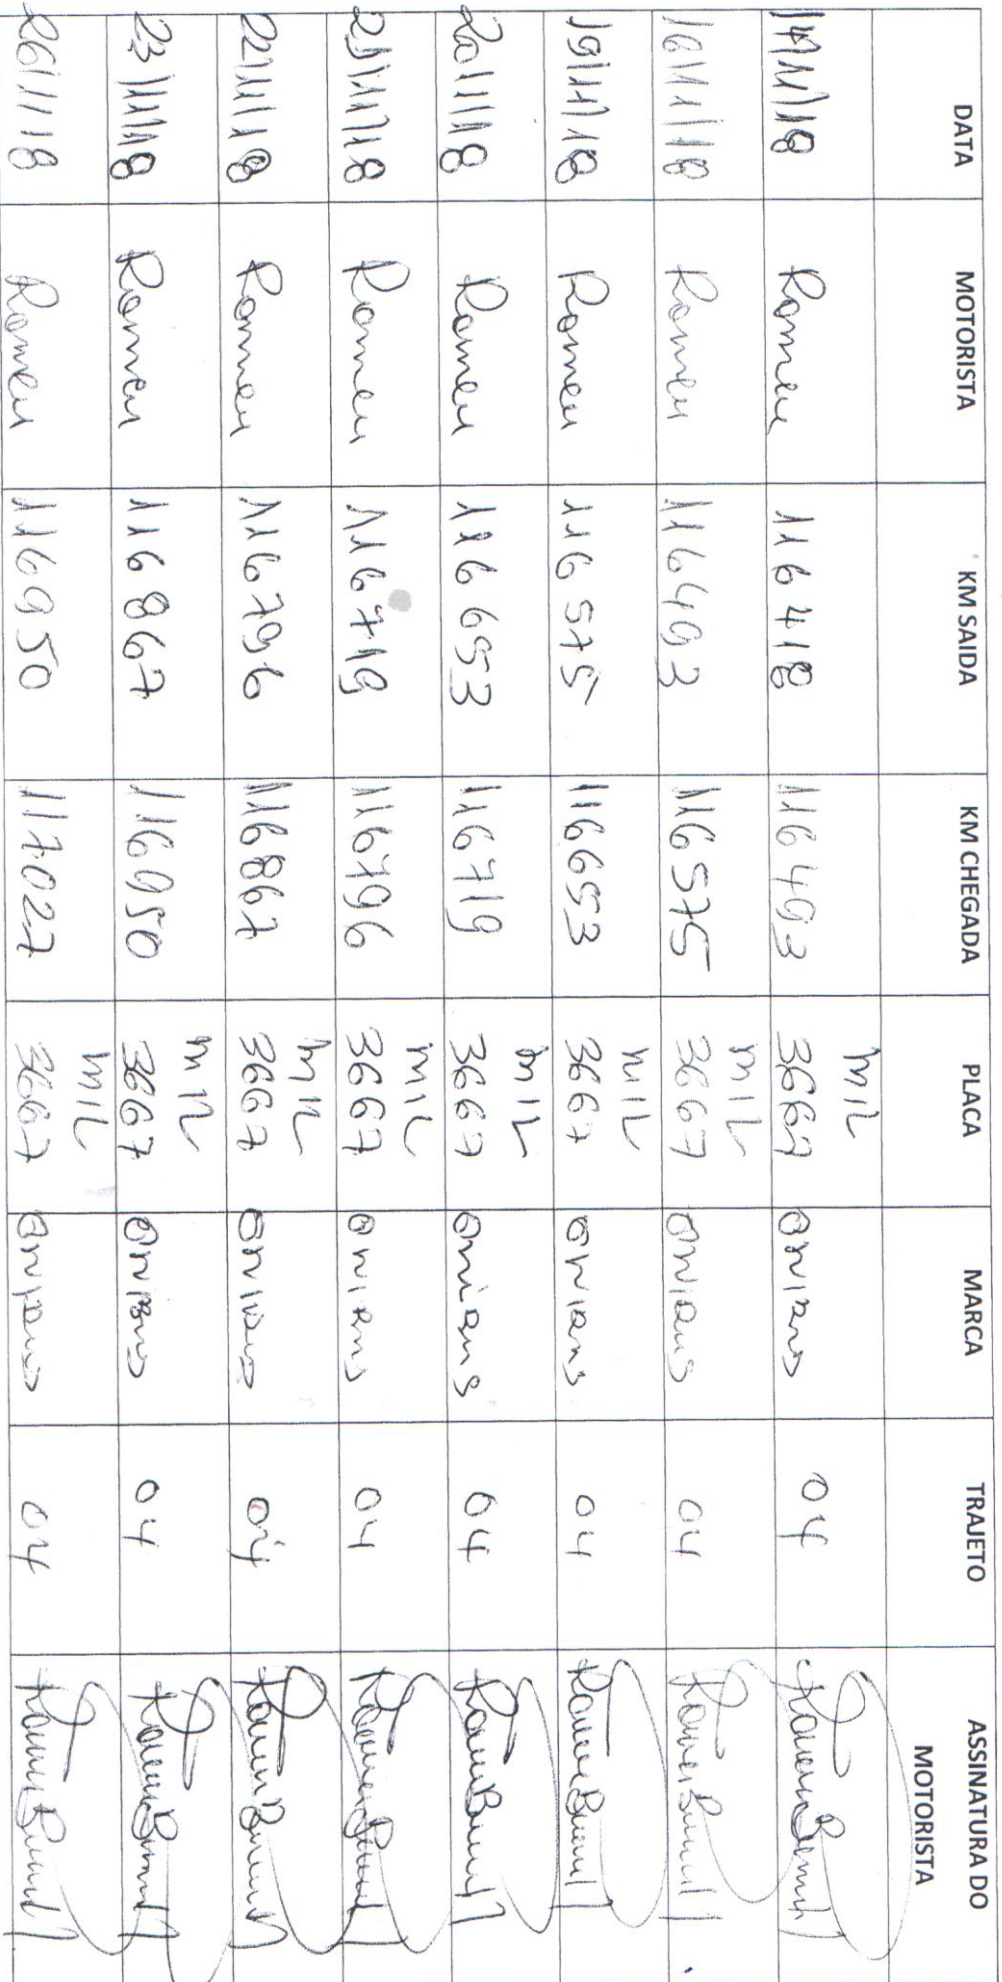 DATA MOTORISTA KM SAIDA KM CHEGADA PLACA MARCA TRAJETO ASSINATURA DO MOTORISTA
14/11/18 Romeu 116418 116493 MIL 3667 onibus 04
16/11/18 Romeu 116493 116575 MIL 3667 onibus 04
19/11/18 Romeu 116575 116653 MIL 3667 onibus 04
20/11/18 Romeu 116653 116719 MIL 3667 onibus 04
21/11/18 Romeu 116719 116796 MIL 3667 onibus 04
22/11/18 Romeu 116796 116867 MIL 3667 onibus 04
23/11/18 Romeu 116867 116950 MIL 3667 onibus 04
26/11/18 Romeu 116950 117027 MIL 3667 onibus 04